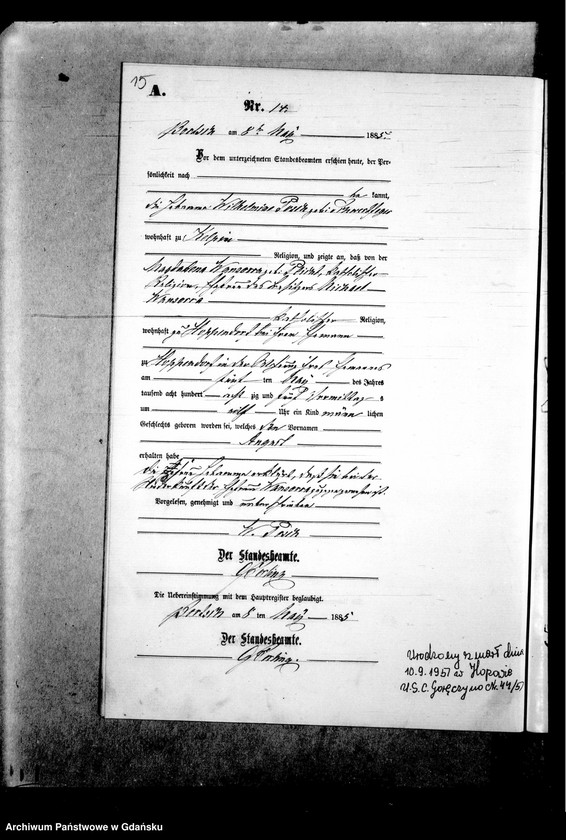 15
A.
Nr. 14.
am 8ten May 1885
Vor dem unterzeichneten Standesbeamten erschien heute, der Per-
sönlichkeit nach
be kannt,
die Hebamme Wilhelmine geb.
wohnhaft zu Kelpin
Religion, und zeigte an, daß von der
Magdalena geb. katholischer
Religion, Ehefrau des Besitzers Michael
katholischer Religion,
wohnhaft zu Hoppendorf bei ihrem Ehemann
zu Hoppendorf in der ihres Ehemannes
am fünf ten May des Jahres
tausend acht hundert acht zig und fünf Vormittags
um acht Uhr ein Kind männ lichen
Geschlechts geboren worden sei, welches den Vornamen
August
erhalten habe
Die Hebamme erklärt, daß sie bei der
Niederkunft der Ehefrau zugegen gewesen ist.
Vorgelesen, genehmigt und unterschrieben
W.
Der Standesbeamte.
Die Uebereinstimmung mit dem Hauptregister beglaubigt.
am 8 ten May 1885
Der Standesbeamte.
Urodzony zmarł dnia
10.9.1957 w
U.S.C. Goręczyno Nr. 44/57
Archiwum Państwowe w Gdańsku